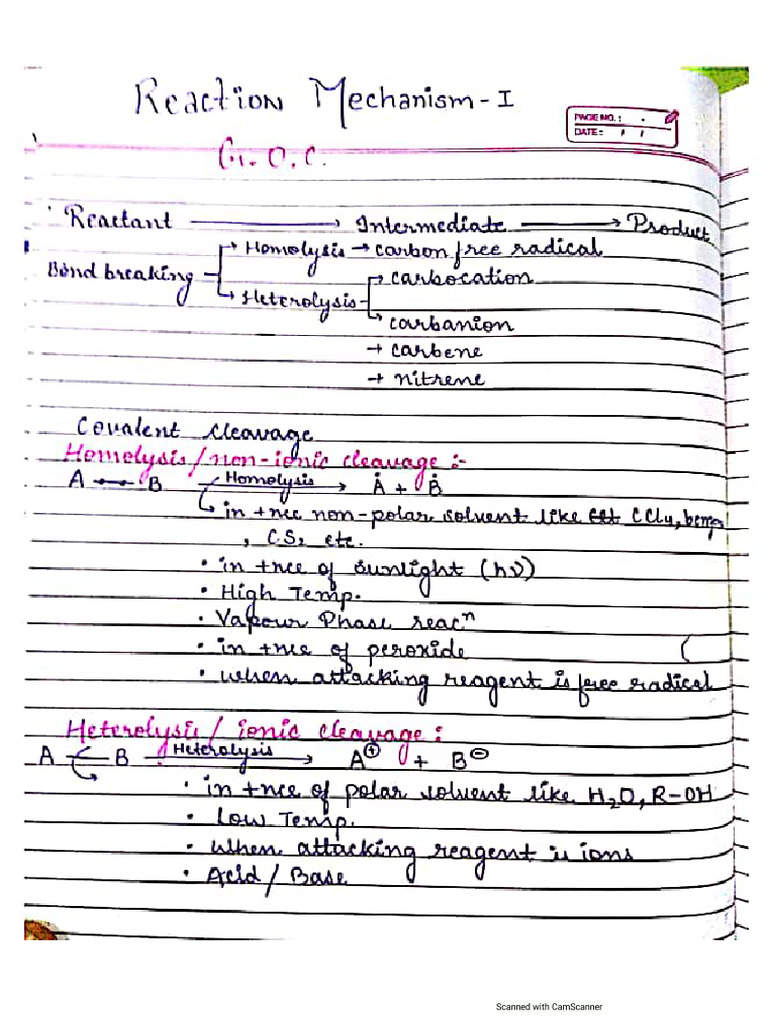 Reaction Mechanism - I
PAGE NO. :
DATE : / /
G.O.C.
Reactant → Intermediate → Product
Bond breaking → Homolysis → carbon free radical
→ Heterolysis → carbocation
→ carbanion
→ carbene
→ nitrene
Covalent cleavage
Homolysis / non-ionic cleavage :-
A — B Homolysis → Ȧ + Ḃ
→ in +nce non-polar solvent like CCl4,
, CS2 etc.
• in +nce of sunlight (hν)
• High Temp.
• Vapour Phase reacⁿ
• in +nce of peroxide (
• when attacking reagent is free radical
Heterolysis / ionic cleavage :
A — B Heterolysis → A⊕ + B⊖
• in +nce of polar solvent like H₂O, R-OH
• Low Temp.
• when attacking reagent is ions
• Acid / Base
Scanned with CamScanner